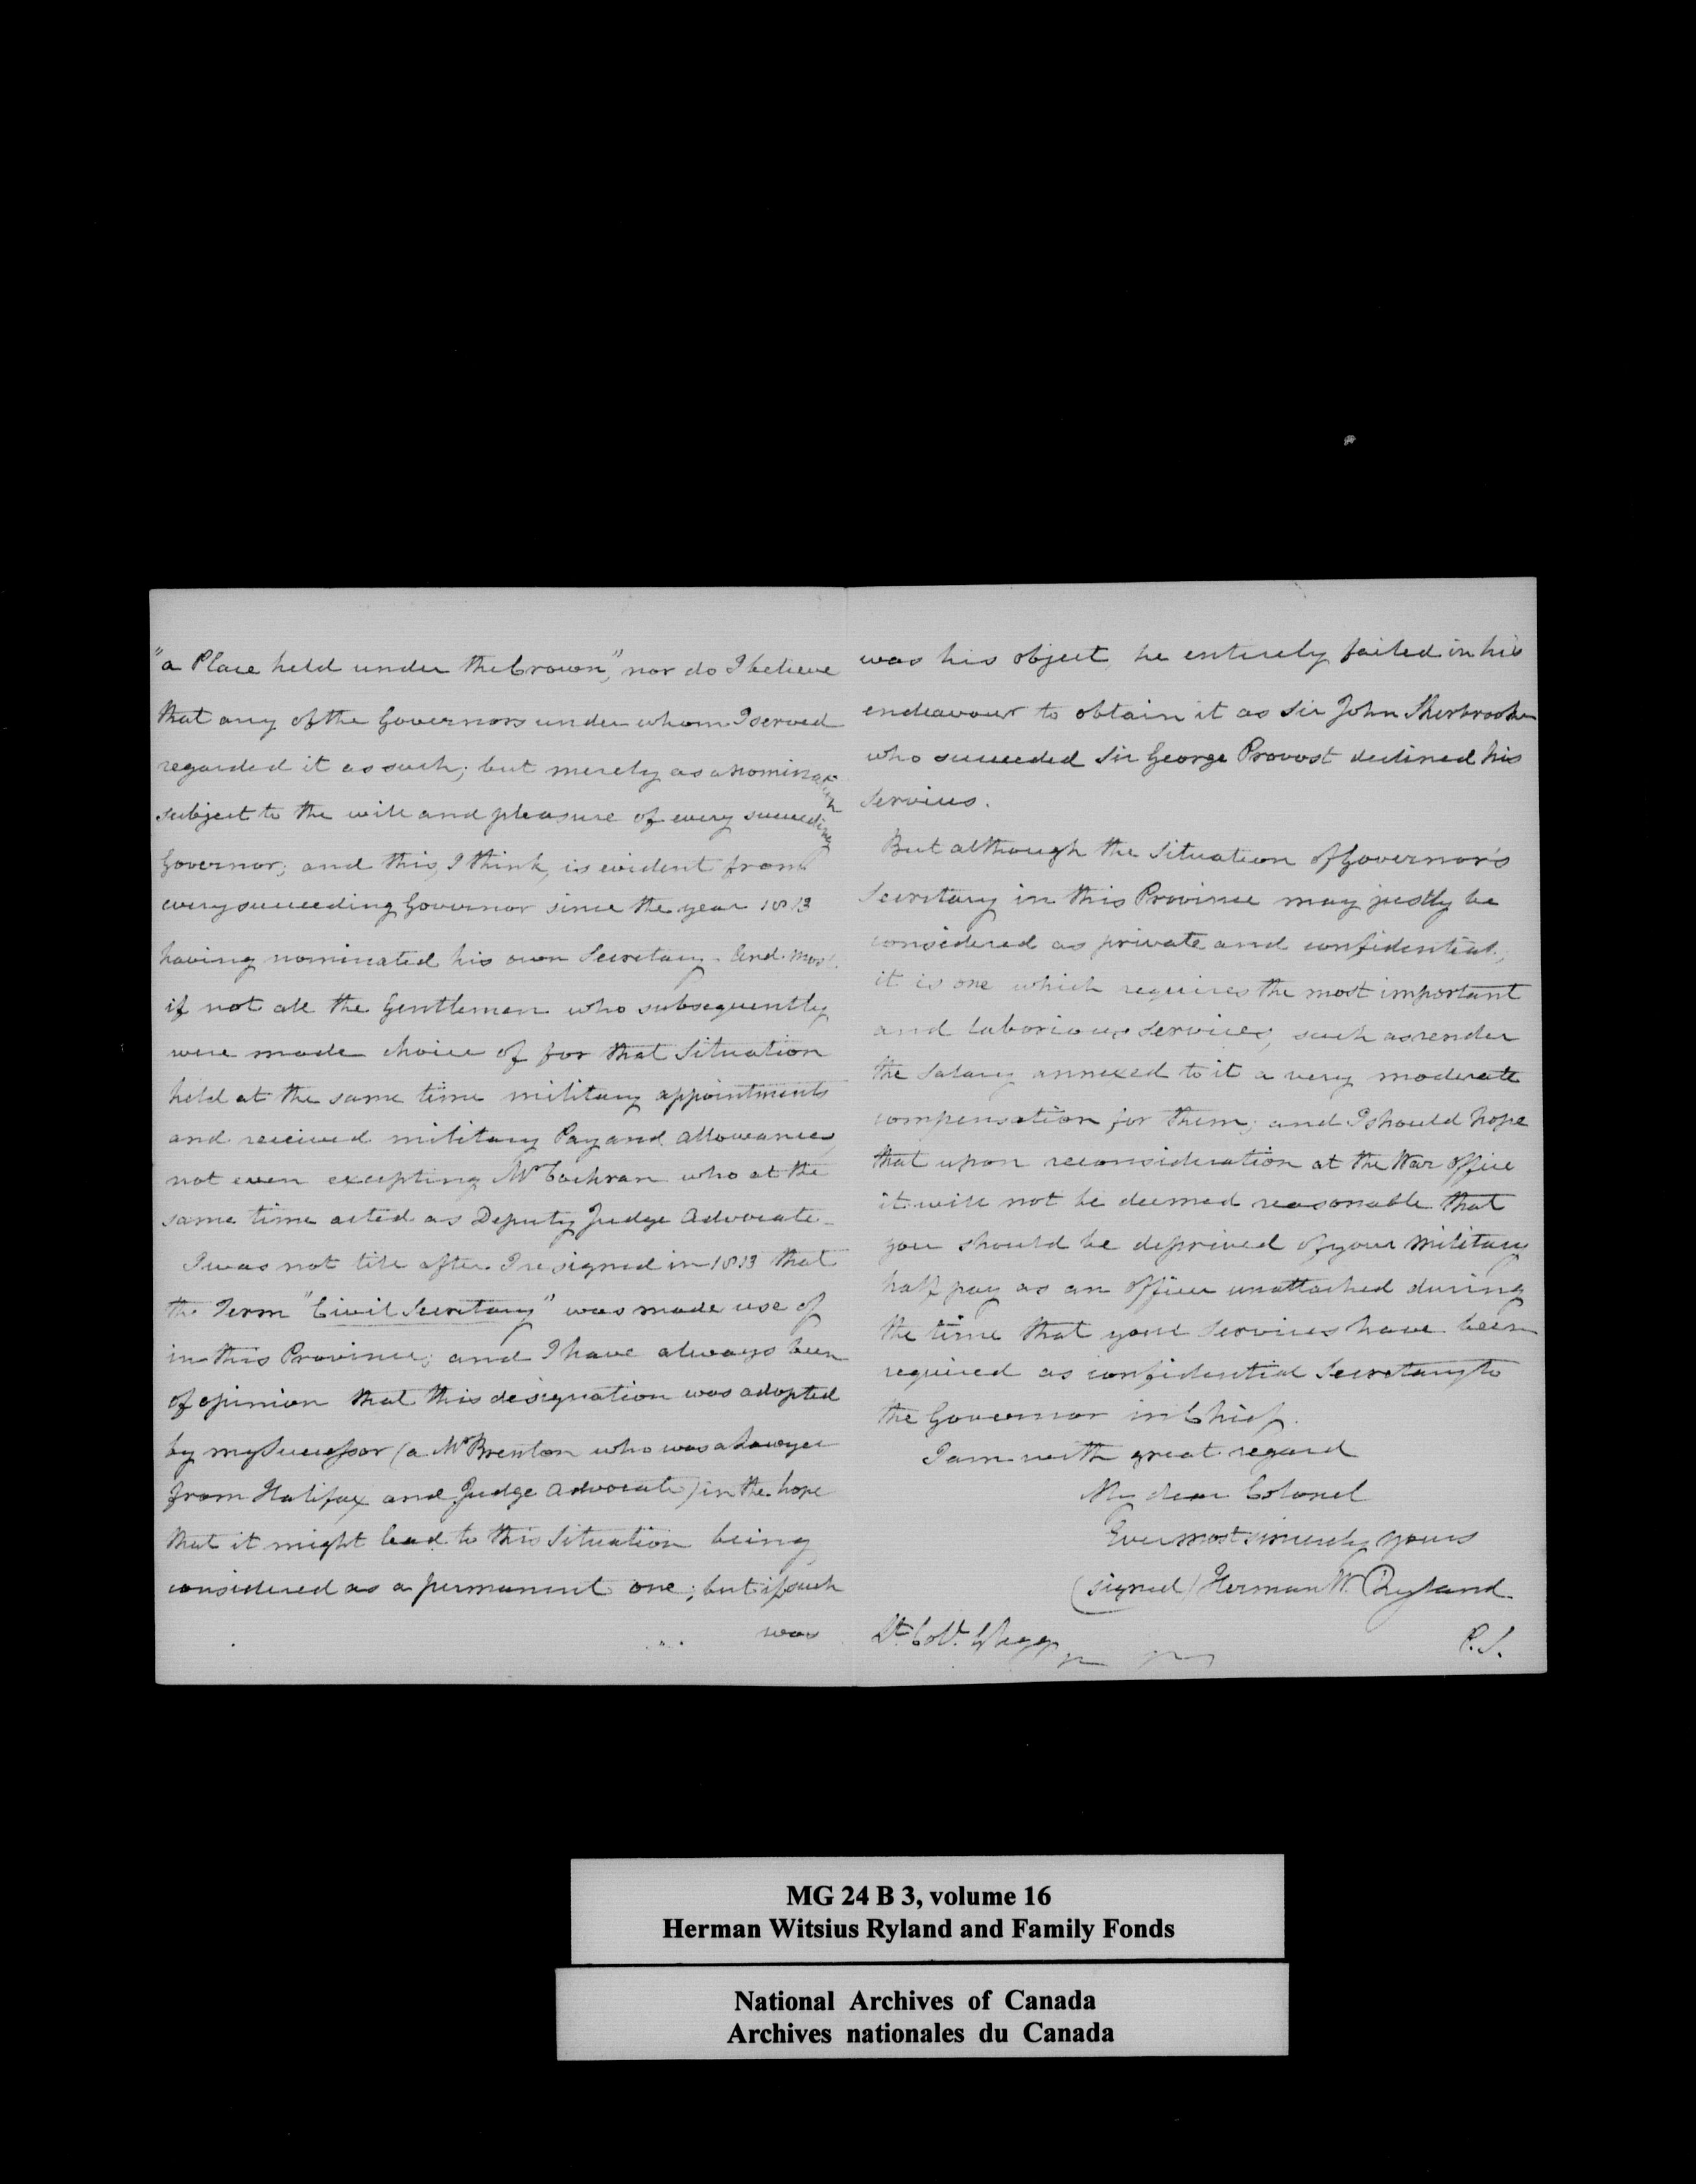 "a Place held under the Crown", nor do I believe
that any of the Governors under whom I served
regarded it as such; but merely as a nomination
subject to the will and pleasure of every succeeding
Governor; and this, I think, is evident from
every succeeding Governor since the year 1813
having nominated his own Secretary. And most
if not all the Gentlemen who subsequently
were made choice of for that Situation
held at the same time military appointments
and received military Pay and Allowances,
not even excepting Mr Cochran who at the
same time acted as Deputy Judge Advocate_
I was not till after I resigned in 1813 that
the Term "Civil Secretary" was made use of
in this Province; and I have always been
of opinion that this designation was adopted
by my Successor (a Mr Brenton who was a Lawyer
from Halifax and Judge Advocate) in the hope
that it might lead to this Situation being
considered as a permanent one; but if such
was
was his object, he entirely failed in his
endeavour to obtain it as Sir John Sherbrooke
who succeeded Sir George Provost declined his
Services.
But although the Situation of Governor's
Secretary in this Province may justly be
considered as private and confidential,
it is one which requires the most important
and laborious services, such as render
the Salary annexed to it a very moderate
compensation for them; and I should hope
that upon reconsideration at the War Office
it will not be deemed reasonable that
you should be deprived of your Military
half pay as an Officer unattached during
the time that your Services have been
required as confidential Secretary to
the Governor in Chief.
I am with great regard
My dear Colonel
Ever most sincerely yours
(signed) Herman W. Ryland
Lt. Col.
P.S.
MG 24 B 3, volume 16
Herman Witsius Ryland and Family Fonds
National Archives of Canada
Archives nationales du Canada